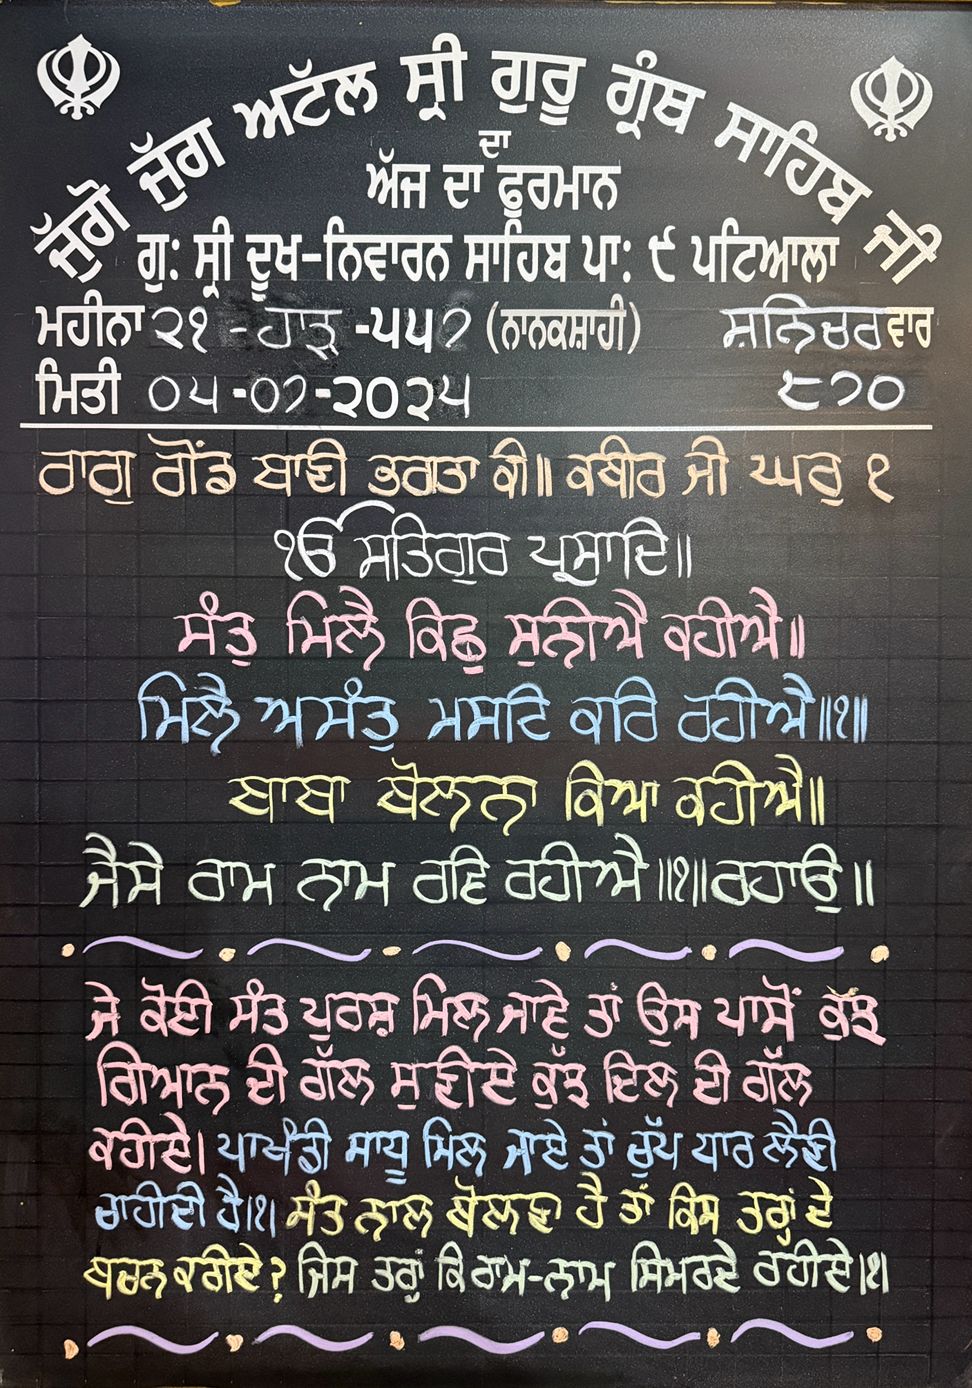 ਜੁੱਗੋ ਜੁੱਗ ਅਟੱਲ ਸ੍ਰੀ ਗੁਰੂ ਗ੍ਰੰਥ ਸਾਹਿਬ ਜੀ
ਦਾ
ਅੱਜ ਦਾ ਫੁਰਮਾਨ
ਗੁ: ਸ੍ਰੀ ਦੂਖ-ਨਿਵਾਰਨ ਸਾਹਿਬ ਪਾ: ੯ ਪਟਿਆਲਾ
ਮਹੀਨਾ ੨੧ - ਹਾੜ੍ -੫੫੭ (ਨਾਨਕਸ਼ਾਹੀ) ਸ਼ਨਿਚਰਵਾਰ
ਮਿਤੀ ੦੫-੦੭-੨੦੨੫ ੮੭੦
ਰਾਗੁ ਗੋਂਡ ਬਾਣੀ ਭਗਤਾ ਕੀ॥ ਕਬੀਰ ਜੀ ਘਰੁ ੧
ੴ ਸਤਿਗੁਰ ਪ੍ਰਸਾਦਿ॥
ਸੰਤੁ ਮਿਲੈ ਕਿਛੁ ਸੁਨੀਐ ਕਹੀਐ॥
ਮਿਲੈ ਅਸੰਤੁ ਮਸਟਿ ਕਰਿ ਰਹੀਐ॥੧॥
ਬਾਬਾ ਬੋਲਨਾ ਕਿਆ ਕਹੀਐ॥
ਜੈਸੇ ਰਾਮ ਨਾਮ ਰਵਿ ਰਹੀਐ॥੧॥ਰਹਾਉ॥
ਜੇ ਕੋਈ ਸੰਤ ਪੁਰਸ਼ ਮਿਲ ਜਾਏ ਤਾਂ ਉਸ ਪਾਸੋਂ ਕੁੱਝ
ਗਿਆਨ ਦੀ ਗੱਲ ਸੁਣੀਏ ਕੁੱਝ ਦਿਲ ਦੀ ਗੱਲ
ਕਹੀਏ। ਪਾਖੰਡੀ ਸਾਧੂ ਮਿਲ ਜਾਏ ਤਾਂ ਚੁੱਪ ਧਾਰ ਲੈਣੀ
ਚਾਹੀਦੀ ਹੈ।੧। ਸੰਤ ਨਾਲ ਬੋਲਣਾ ਹੈ ਤਾਂ ਕਿਸ ਤਰ੍ਹਾਂ ਦੇ
ਬਚਨ ਕਰੀਏ? ਜਿਸ ਤਰ੍ਹਾਂ ਕਿ ਰਾਮ-ਨਾਮ ਸਿਮਰਦੇ ਰਹੀਏ।੧।